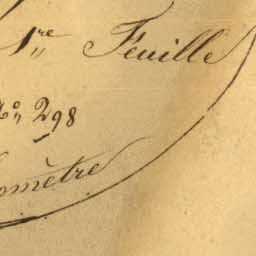 1re Feuille
No 298
omètre